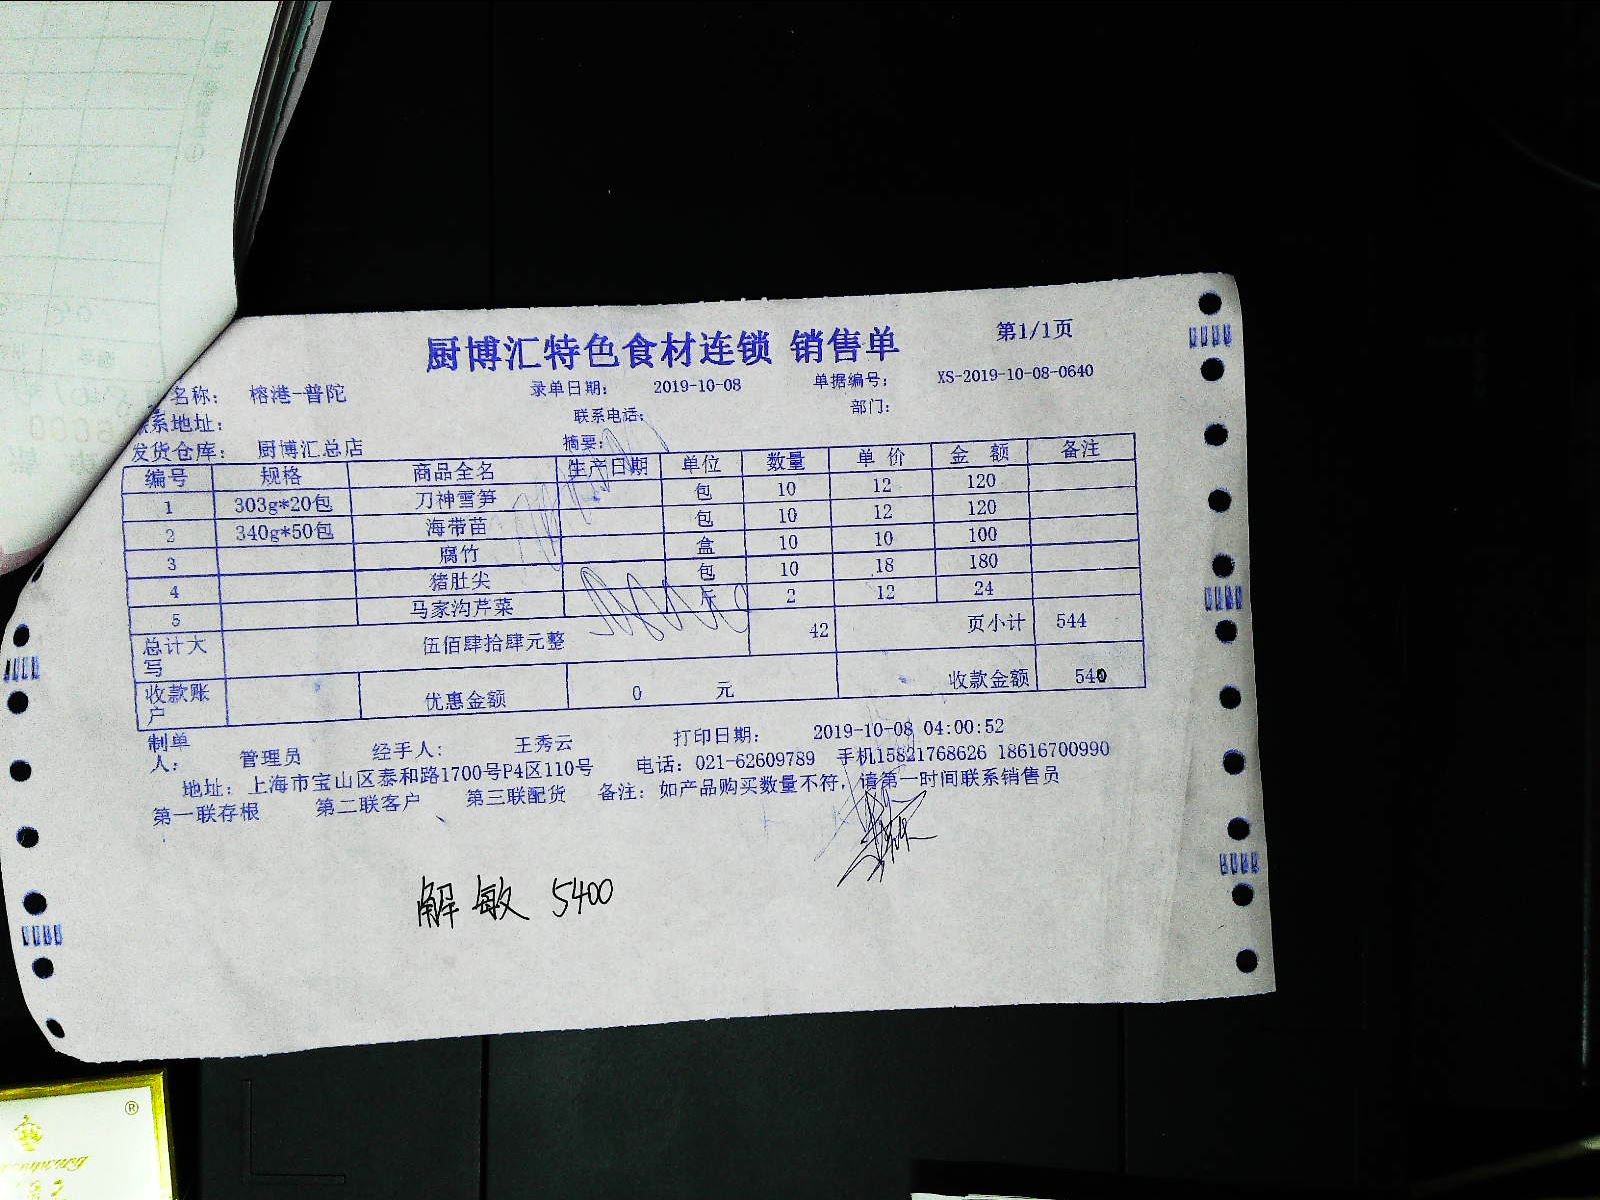 厨博汇特色食材连锁 销售单 第1/1页
名称: 榕港-普陀 录单日期: 2019-10-08 单据编号: XS-2019-10-08-0640
联系地址: 联系电话: 部门:
发货仓库: 厨博汇总店 摘要:
编号 规格 商品全名 生产日期 单位 数量 单价 金额 备注
1 303g*20包 刀神雪笋 包 10 12 120
2 340g*50包 海带苗 包 10 12 120
3 腐竹 盒 10 10 100
4 猪肚尖 包 10 18 180
5 马家沟芹菜 斤 2 12 24
总计大写 伍佰肆拾肆元整 42 页小计 544
收款账户 优惠金额 0 元 收款金额 540
制单人: 管理员 经手人: 王秀云 打印日期: 2019-10-08 04:00:52
地址: 上海市宝山区泰和路1700号P4区110号 电话: 021-62609789 手机15821768626 18616700990
第一联存根 第二联客户 第三联配货 备注: 如产品购买数量不符, 请第一时间联系销售员
解敏 5400